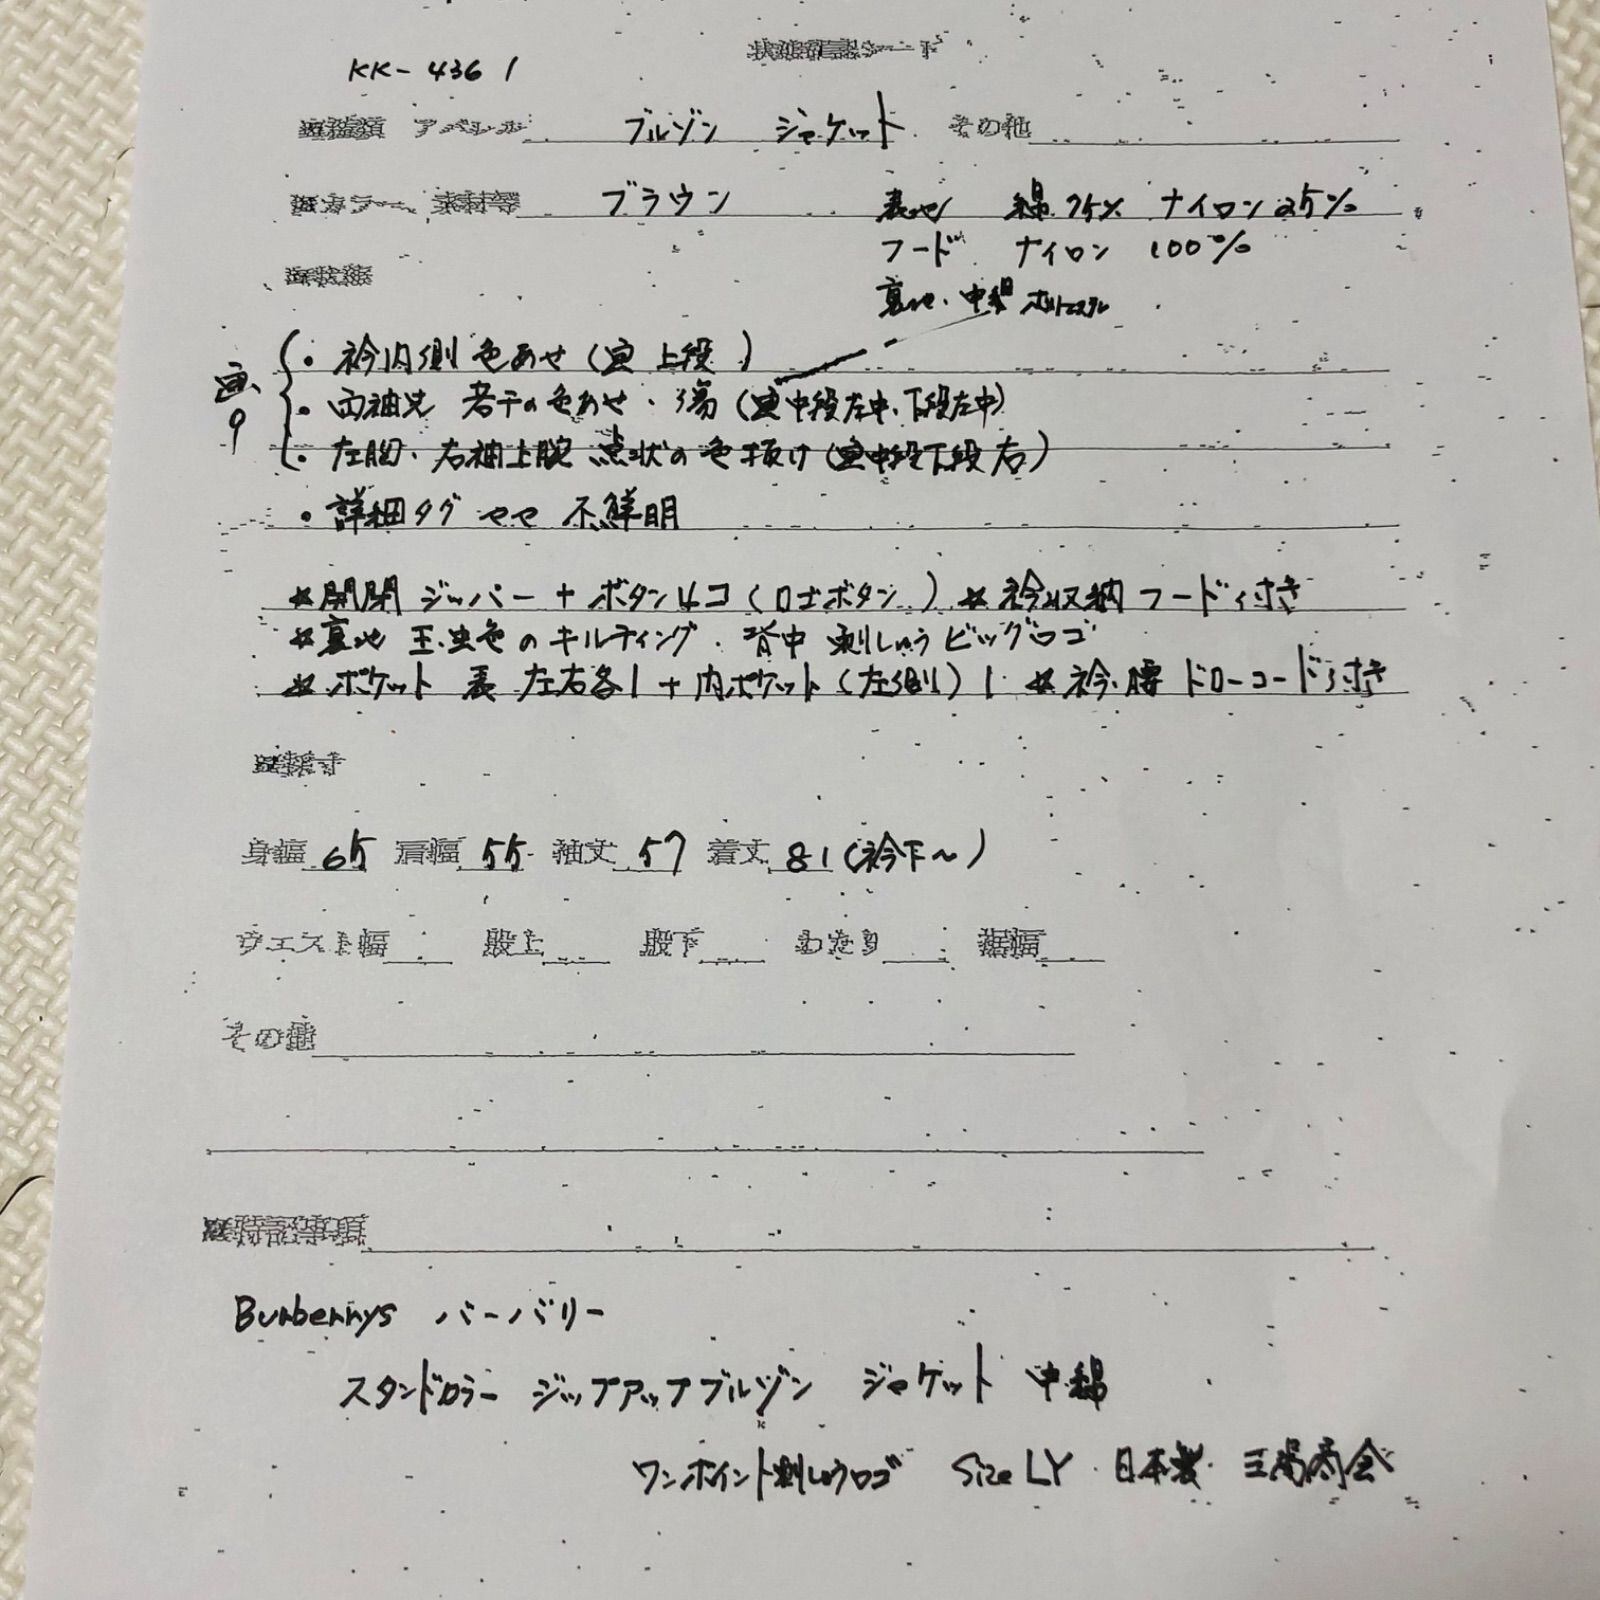 状態確認シート
KK-4361
アパレル ブルゾン ジャケット その他
カラー、素材等 ブラウン 表地 綿75% ナイロン25%
フード ナイロン 100%
裏地・中綿 ポリエステル
状態
画9
・衿内側 色あせ(画 上段)
・両袖先 若干の色あせ・傷(画中段左中、下段左中)
・左胸、右袖上腕 点状の色抜け(画中段下段右)
・詳細タグ やや 不鮮明
*開閉 ジッパー+ボタン4コ(ロゴボタン) *衿収納フード付き
*裏地 玉虫色のキルティング、背中 刺しゅうビッグロゴ
*ポケット 表 左右各1+内ポケット(左側)1 *衿・腰 ドローコード付き
採寸
身幅 65 肩幅 55 袖丈 57 着丈 81(衿下~)
ウエスト幅 股上 股下 わたり 裾幅
その他
特記事項
Burberrys バーバリー
スタンドカラー ジップアップブルゾン ジャケット 中綿
ワンポイント刺しゅうロゴ Size LY 日本製 三陽商会